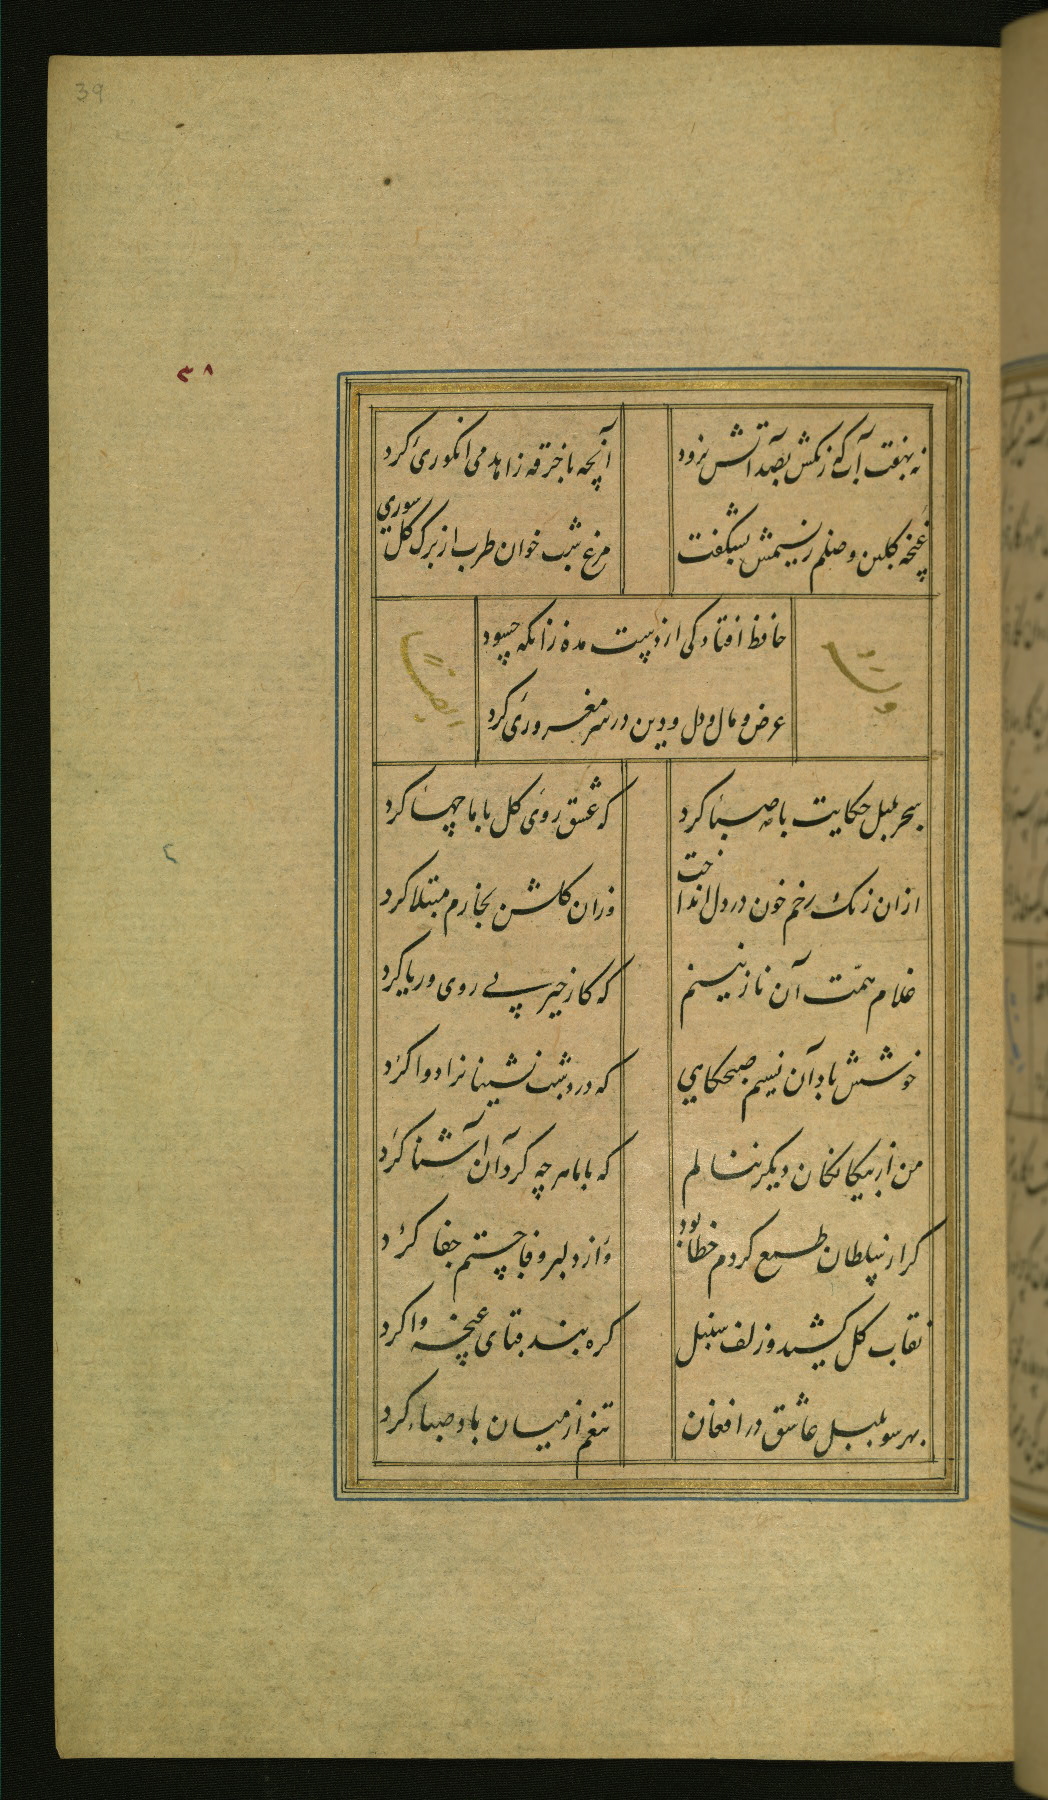 39
٣٨
نه بهفت آب که رنکش بصد آتش نرود
آنچه با خرقه زاهد می انکوری کرد
غنچه کلبن وصلم ز نسیمش بشکفت
مرغ شب خوان طرب از برک کل سوری
حافظ افتادکی از دست مده زانکه حسود
عرض و مال و دل و دین در سر مغروری کرد
وله
ایضا
سحر بلبل حکایت با صبا کرد
که عشق روی کل با ما چها کرد
ازان رنک رخم خون در دل انداخت
وزان کلشن بخارم مبتلا کرد
غلام همت آن نازنینم
که کار خیر بی روی و ریا کرد
خوشش باد آن نسیم صبحکاهی
که درد شب نشینانرا دوا کرد
من از بیکانکان دیکر ننالم
که با ما هر چه کرد آن آشنا کرد
کر از سلطان طمع کردم خطا بود
ور از دلبر وفا جستم جفا کرد
نقاب کل کشید و زلف سنبل
کره بند قبای غنچه وا کرد
بهر سو بلبل عاشق در افغان
تنعم از میان باد صبا کرد